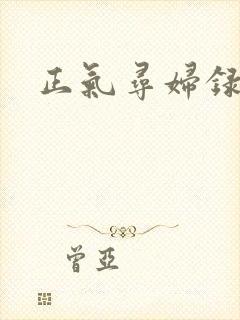 正氣尋婦録
曾亞